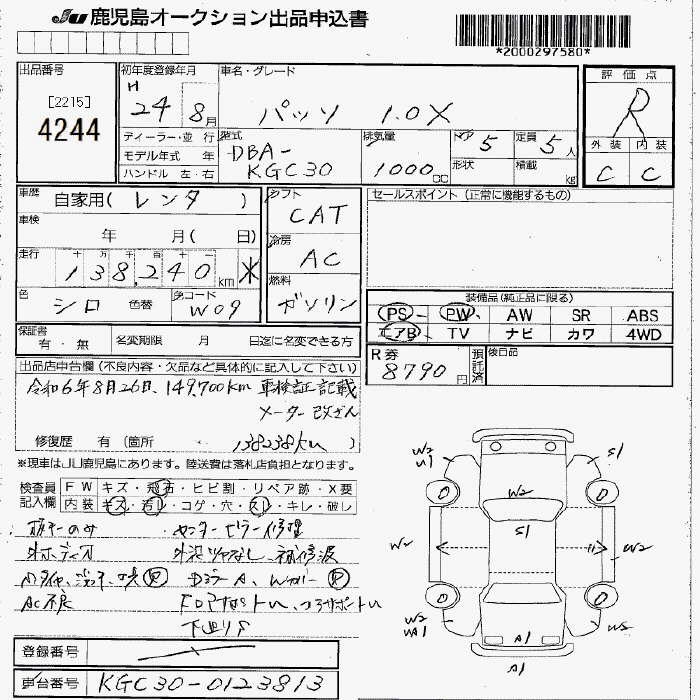 JU 鹿児島オークション出品申込書
*2000297580*
出品番号
[2215]
4244
初年度登録年月
H
24 8月
車名・グレード
パッソ 1.0X
評価点
R
外装 内装
C C
ディーラー・並行
モデル年式 年
ハンドル 左・右
型式
DBA-
KGC30
排気量
1000cc
ドア 5
形状
定員 5人
積載 kg
車歴 自家用(レンタ)
車検
年 月( 日)
走行
十 万 千 百 十
138,240km
色
シロ 色替
カラーコード
W09
シフト
CAT
冷房
AC
燃料
ガソリン
セールスポイント (正常に機能するもの)
装備品(純正品に限る)
PS PW AW SR ABS
エアB TV ナビ カワ 4WD
保証書
有・無
名変期限 月 日迄に名変できる方
R券
8790円
預託済
後日品
出品店申告欄(不良内容・欠品など具体的に記入して下さい)
令和6年8月26日、149,700km 車検証記載
メーター改ざん
修復歴 有(箇所 138238km )
※現車はJU鹿児島にあります。陸送費は落札店負担となります。
検査員
記入欄
FW キズ・飛石・ヒビ割・リペア跡・X要
内装 キズ・汚レ・コゲ・穴・スレ・キレ・破レ
センターピラー修理
AC不良
W2
U1
S1
W2
S1
W2
W2
W2
A1
A1
登録番号
車台番号 KGC30-0123813